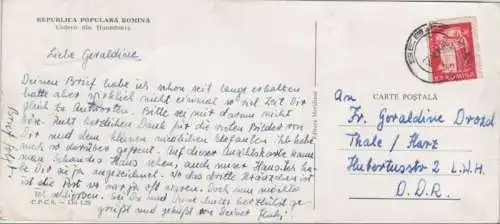 REPUBLICA POPULARĂ ROMÎNĂ
Vedere din Hunedoara
Liebe Geraldine
Deinen Brief habe ich schon seit lange erhalten
hatte aber wirklich nicht einmal so viel Zeit Dir
gleich zu Antworten. Bitte sei mir darum nicht
böse. Recht herzlichen Dank für die vielen Bilder von
Dir und dem kleinen niedlichen Stefanlein. Ich habe
mich so darüber gefreut. Auf dieser Ansichtskarte kann
man Schandis Haus sehen, auch unser Haus. Ich
habe Dir sie ja angezeichnet. Wo das dritte Kreuzchen ist
ist die Post wo war ja oft
schliessen. Sei Du und Deine herzlichst ge-
grüßt und geküßt von Deiner
C.P.C.S.
CARTE POȘTALĂ
R.P. ROMINA
An
Fr. Geraldine Drozd
Thale / Harz
Hubertusstr 2 L.W.H.
D.D.R.